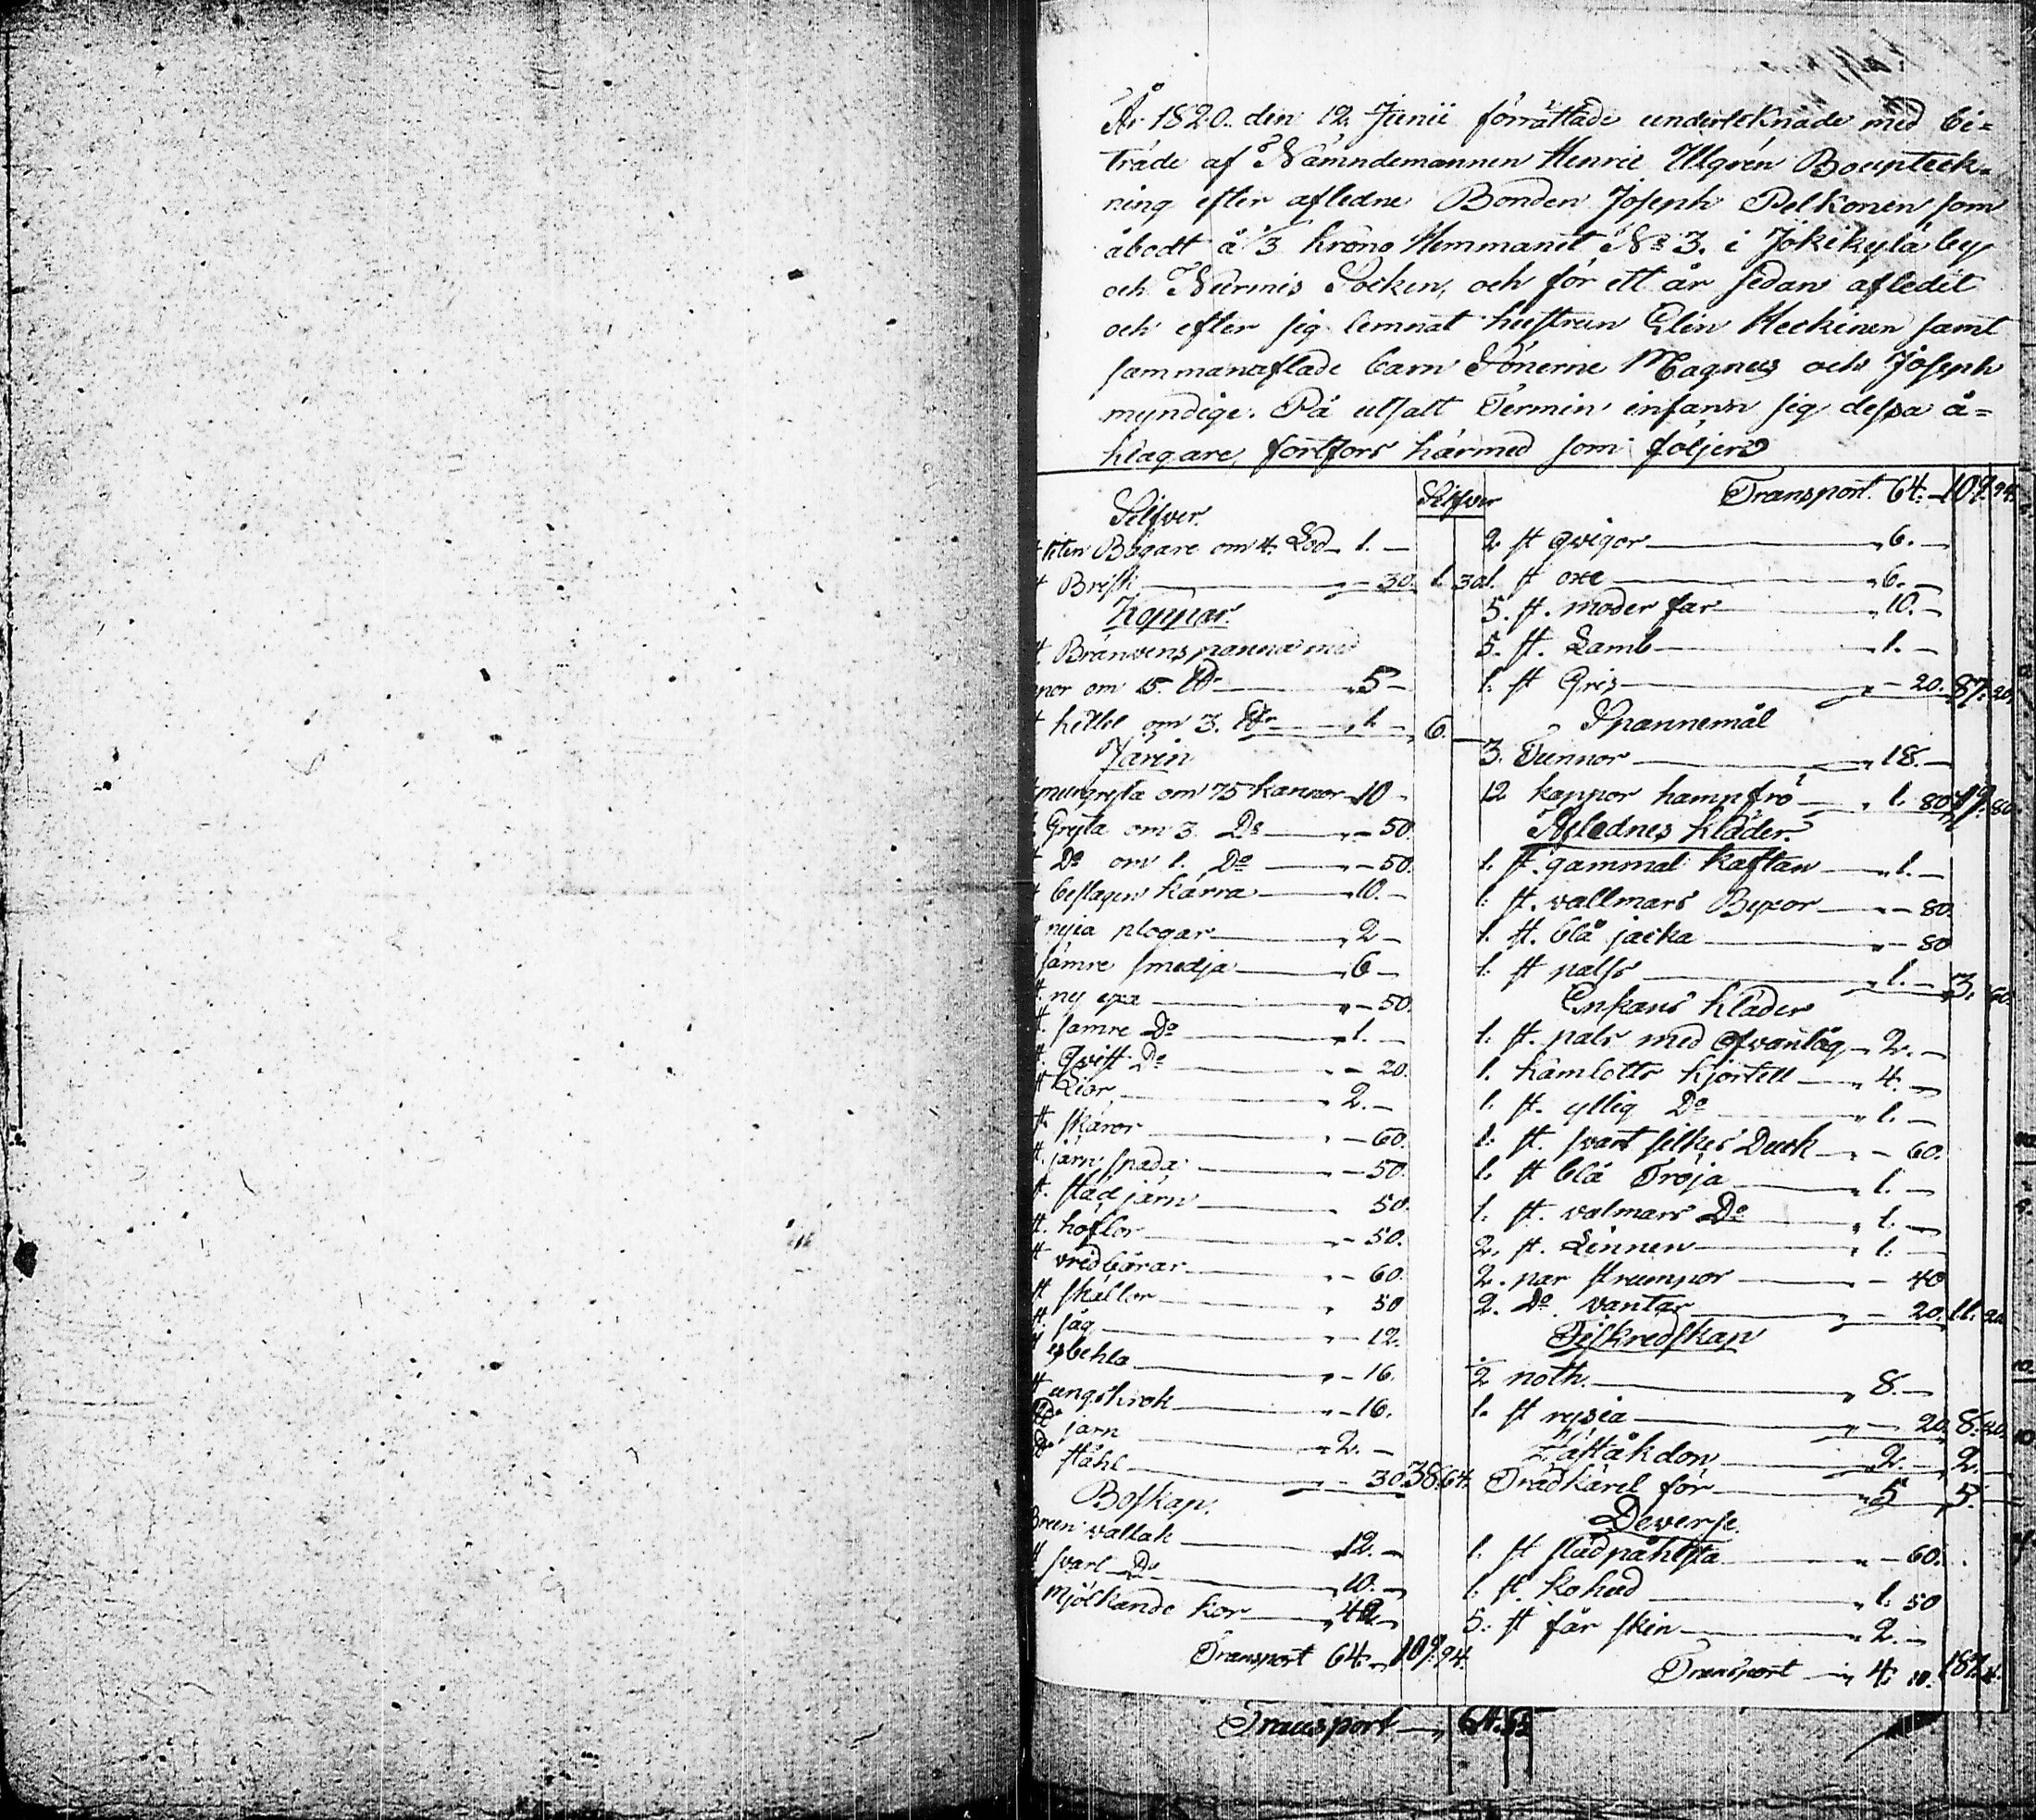 År 1820. den 12. Junii förrättade undertcknade med bi=
träde af Nämndemannen Henric Ullgrén Boupteck-
ning efter afledne Bonden Joseph Pelkonen som
åbodt å 1/3 krono Hemmanet No 3. i Jokikylä by
och Nurmis Socken, och för ett år sedan afledit
och efter sig lemnat hustrun Elin Keckinen samt
sammanaflade barn Sönerne Magnus och Joseph
myndige. På utsatt Termin infann sig dessa å=
klagare, fortfors härmed som följer
Silfver
Silfver
liten Bägare om 4. Lod 1. —
Brisk — 30. 1. 30
Koppar
st. Bränvens panna med
om 15. ℔r 5 —
kittel om 3. ℔r 1. — 6. —
Jarn
murgryta om 75 kannor 10 —
Gryta om 3. Do — 50
Do om 1. Do — 50.
beslagen kärra 10. —
nyia plogar 2 —
sämre smedja 6 —
st. ny yxa — 50.
st. samre Do 1. —
st. Do — 20.
st Liar 2. —
st. skäror — 60.
st. järn spada — 50.
st. städ järn 50.
st. höflor — 50.
st vridbårar — 60.
st skällor 50
st. såg — 12.
— 16.
st ungskrok — 16.
℔r jarn 2. —
℔r ståhl — 30. 38. 64.
Boskap.
Brun vallak 12. —
st svart Do 10. —
Mjölkande kor 42 —
Transport 64. — 107. 94.
Transport. 64. — 107. 94.
2 st qvigor 6. —
1. st oxe 6. —
5. st. moder får 10. —
5. st. Lamb 1. —
1. st Gris — 20. 87. 20.
Spannemål
3. Tunnor 18. —
12 kappor hampfrö 1. 80 19. 80
Aflednes kläder
1. st. gammal kaftan 1. —
1. st. vallmars Byxor — 80.
1. st. blå jacka — 80
1. st päls 1. — 3. 60.
Enkans kläder
1. st. päls med 2. —
1. kamlotts kjortell 4. —
1. st. yllig Do 1. —
1. st. svart silkes Duck — 60.
1. st blå Tröja 1. —
1. st. valmars Do 1. —
2. st. Linnen 1. —
2. par strumpor — 40
2. Do. vantar — 20. 11. 20
Fiskredskap
1/2 noth. 8. —
1. st rysia — 20 8. 20.
åkdon 2. — 2. —
Trädkäril för 5 5. —
Deverse
1. st — 60.
1. st. kohud 1. 50
5. st får skin 2. —
Transport 4. 10. 187.
Transport 64.